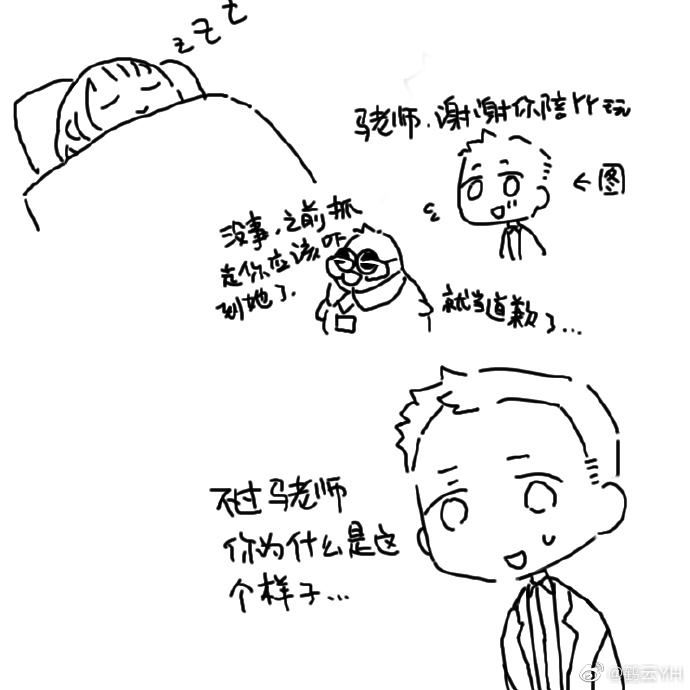 z z z
马老师.谢谢你陪YY玩
←图
没事.之前抓
走你应该吓
到她了.
就当道歉了...
不过马老师
你为什么是这
个样子...
@鹤云YH